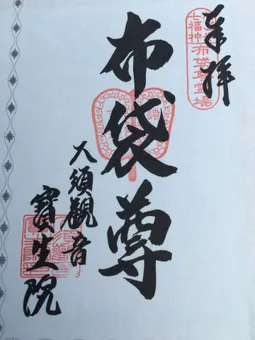 奉拝
七福神布袋尊霊場
布袋尊
大須観音
寳生院